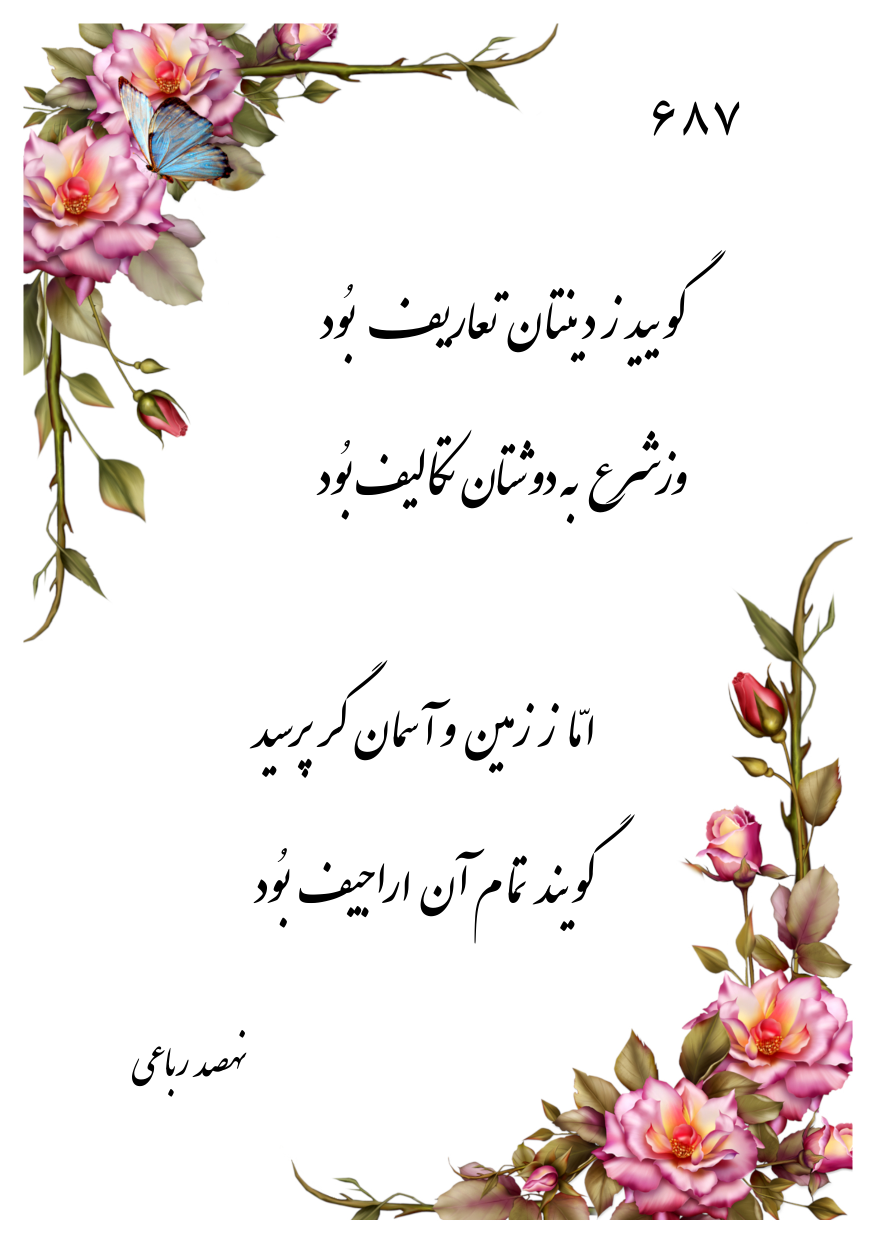 ۶۸۷
گویید ز دینتان تعاریف بُود
وز شرع به دوشتان تکالیف بُود
امّا ز زمین و آسمان گر پرسید
گویند تمام آن اراجیف بُود
نهصد رباعی